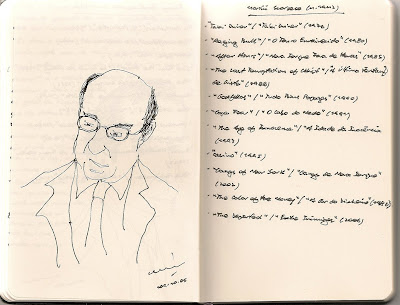 Martin Scorsese (n. 1942)
- "Taxi Driver" / "Taxi Driver" (1976)
- "Raging Bull" / "O Touro Enraivecido" (1980)
- "After Hours" / "Nova Iorque Fora de Horas" (1985)
- "The Last Temptation of Christ" / "A Última Tentação
de Cristo" (1988)
- "Goodfellas" / "Tudo Bons Rapazes" (1990)
- "Cape Fear" / "O Cabo do Medo" (1991)
- "The Age of Innocence" / "A Idade da Inocência"
(1993)
- "Casino" (1995)
- "Gangs of New York" / "Gangs de Nova Iorque"
(2002)
- "The Color of the Money" / "A Cor do Dinheiro" (1986)
- "The Departed" / "Entre Inimigos" (2006)